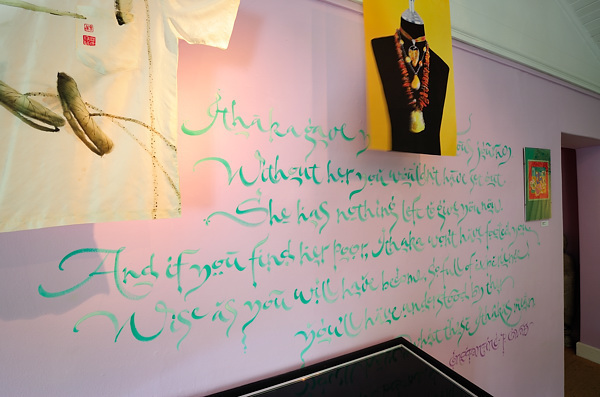 Ithaka gave journey
Without her you wouldn't have set
She has nothing left to give you now
And if you find her poor, Ithaka won't have fooled you
Wise as you will have become, so full of experience
you'll have understood by then
what these Ithakas mean